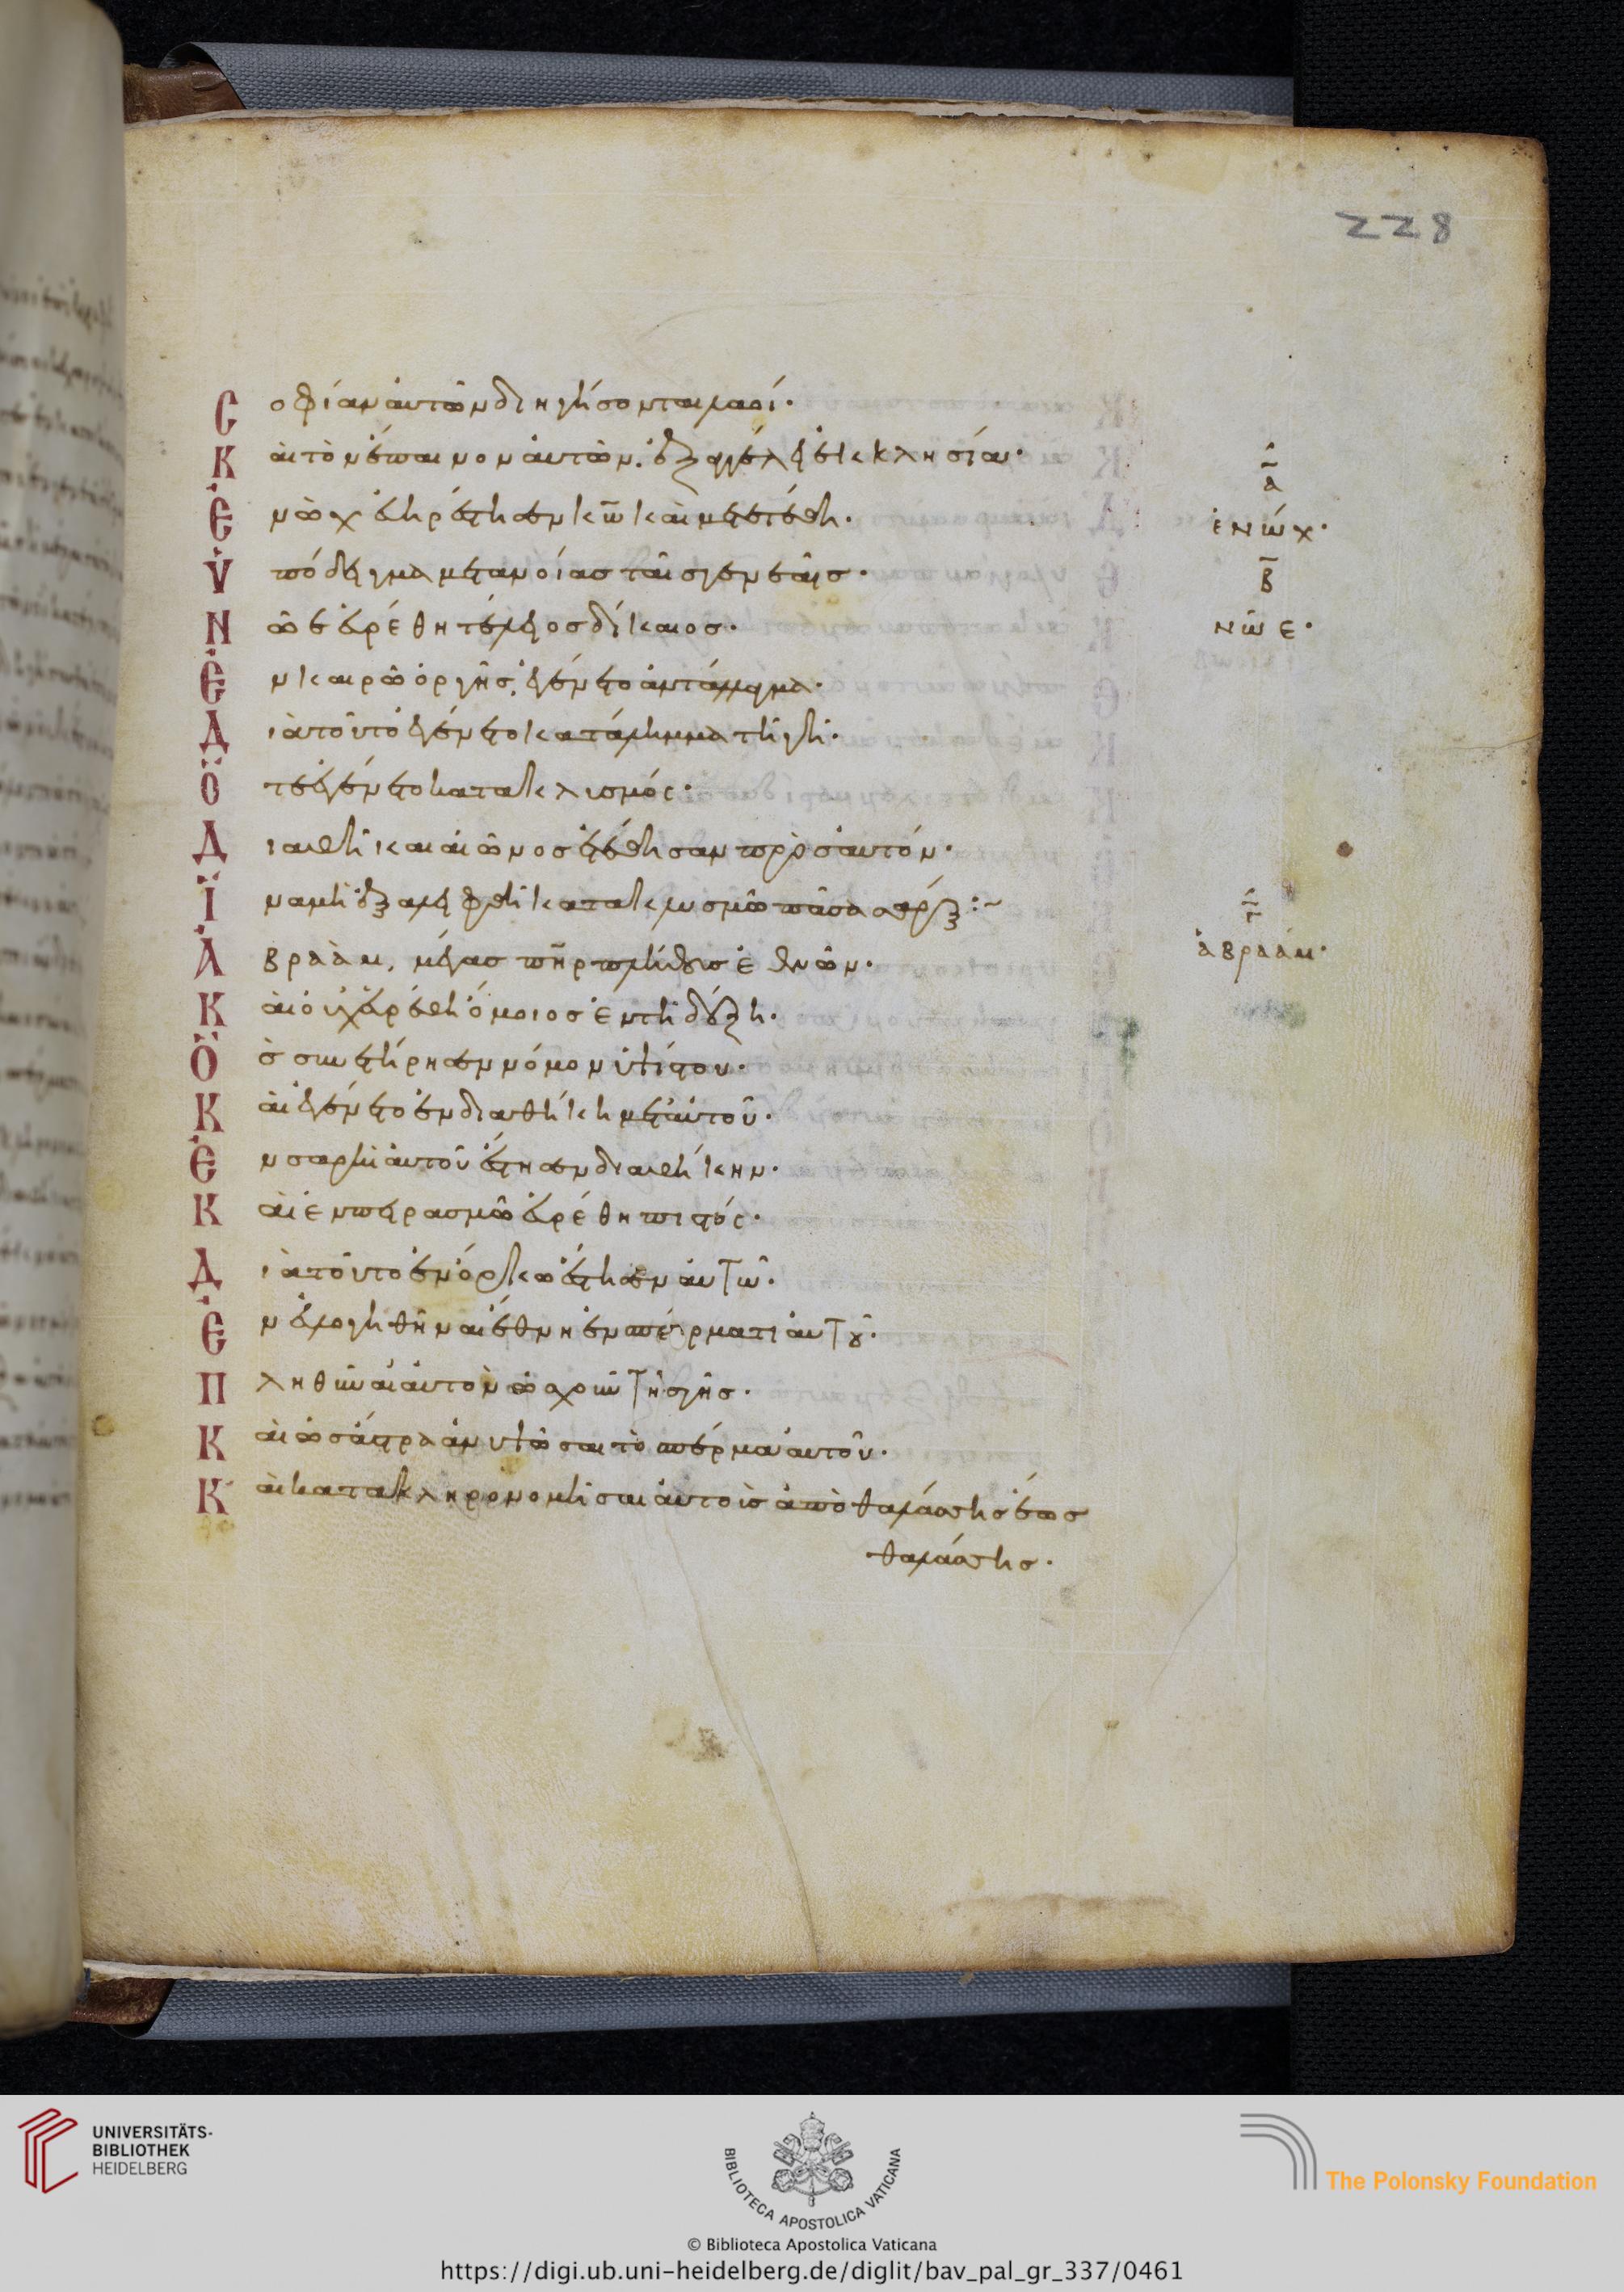 228
Σοφίαν αὐτῶν διηγήσονται λαοί·
Καὶ τὸν ἔπαινον αὐτῶν, ἐξαγγέλλει ἐκκλησία·
Ἐνὼχ εὐηρέστησεν κω̅ καὶ μετετέθη·
α̅
ἐνώχ·
Ὑπόδειγμα μετανοίας ταῖς γενεαῖς·
β̅
Νῶε εὑρέθη τέλειος δίκαιος·
νῶε·
Ἐν καιρῶ ὀργῆς, ἐγένετο ἀντάλλαγμα·
Διὰ τοῦτο ἐγένετο κατάλημμα τῆ γῆ·
Ὅτε ἐγένετο κατακλισμός·
Διαθῆκαι αἰῶνος ἐτέθησαν πρὸς αὐτόν·
Ἵνα μὴ ἐξαλειφθῆ κατακλυσμῶ πᾶσα σάρξ:~
γ̅
Ἀβραὰμ, μέγας πη̅ρ πλήθους ἐθνῶν·
ἀβραάμ·
Καὶ οὐχ εὑρέθη ὅμοιος ἐν τῆ δόξη·
Ὃς συνετήρησεν νόμον ὑψίστου·
Καὶ ἐγένετο ἐν διαθήκη μετ αὐτοῦ·
Ἐν σαρκὶ αὐτοῦ ἔστησεν διαθήκην·
Καὶ ἐν πειρασμῶ εὑρέθη πιστός·
Διὰ τοῦτο ἐν ὅρκω ἔστησεν αὐτῶ·
Ἐνευλογηθῆναι ἔθνη ἐν σπέρματι αὐτοῦ·
Πληθῦναι αὐτὸν ὡς χοῦν τῆς γῆς·
Καὶ ὡς ἄστρα ἀνυψῶσαι τὸ σπέρμα αὐτοῦ·
Καὶ κατακληρονομῆσαι αὐτοὺς ἀπὸ θαλάσσης ἕως
θαλάσσης·
UNIVERSITÄTS-
BIBLIOTHEK
HEIDELBERG
BIBLIOTECA APOSTOLICA VATICANA
The Polonsky Foundation
© Biblioteca Apostolica Vaticana
https://digi.ub.uni-heidelberg.de/diglit/bav_pal_gr_337/0461